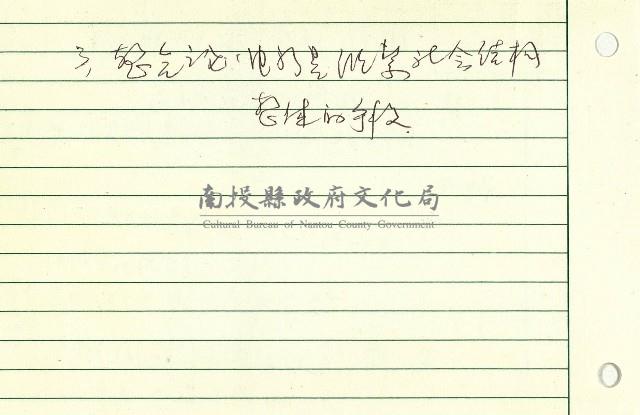 3、整合說 是維繫社会結构
整体的手段.
南投縣政府文化局
Cultural Bureau of Nantou County Government